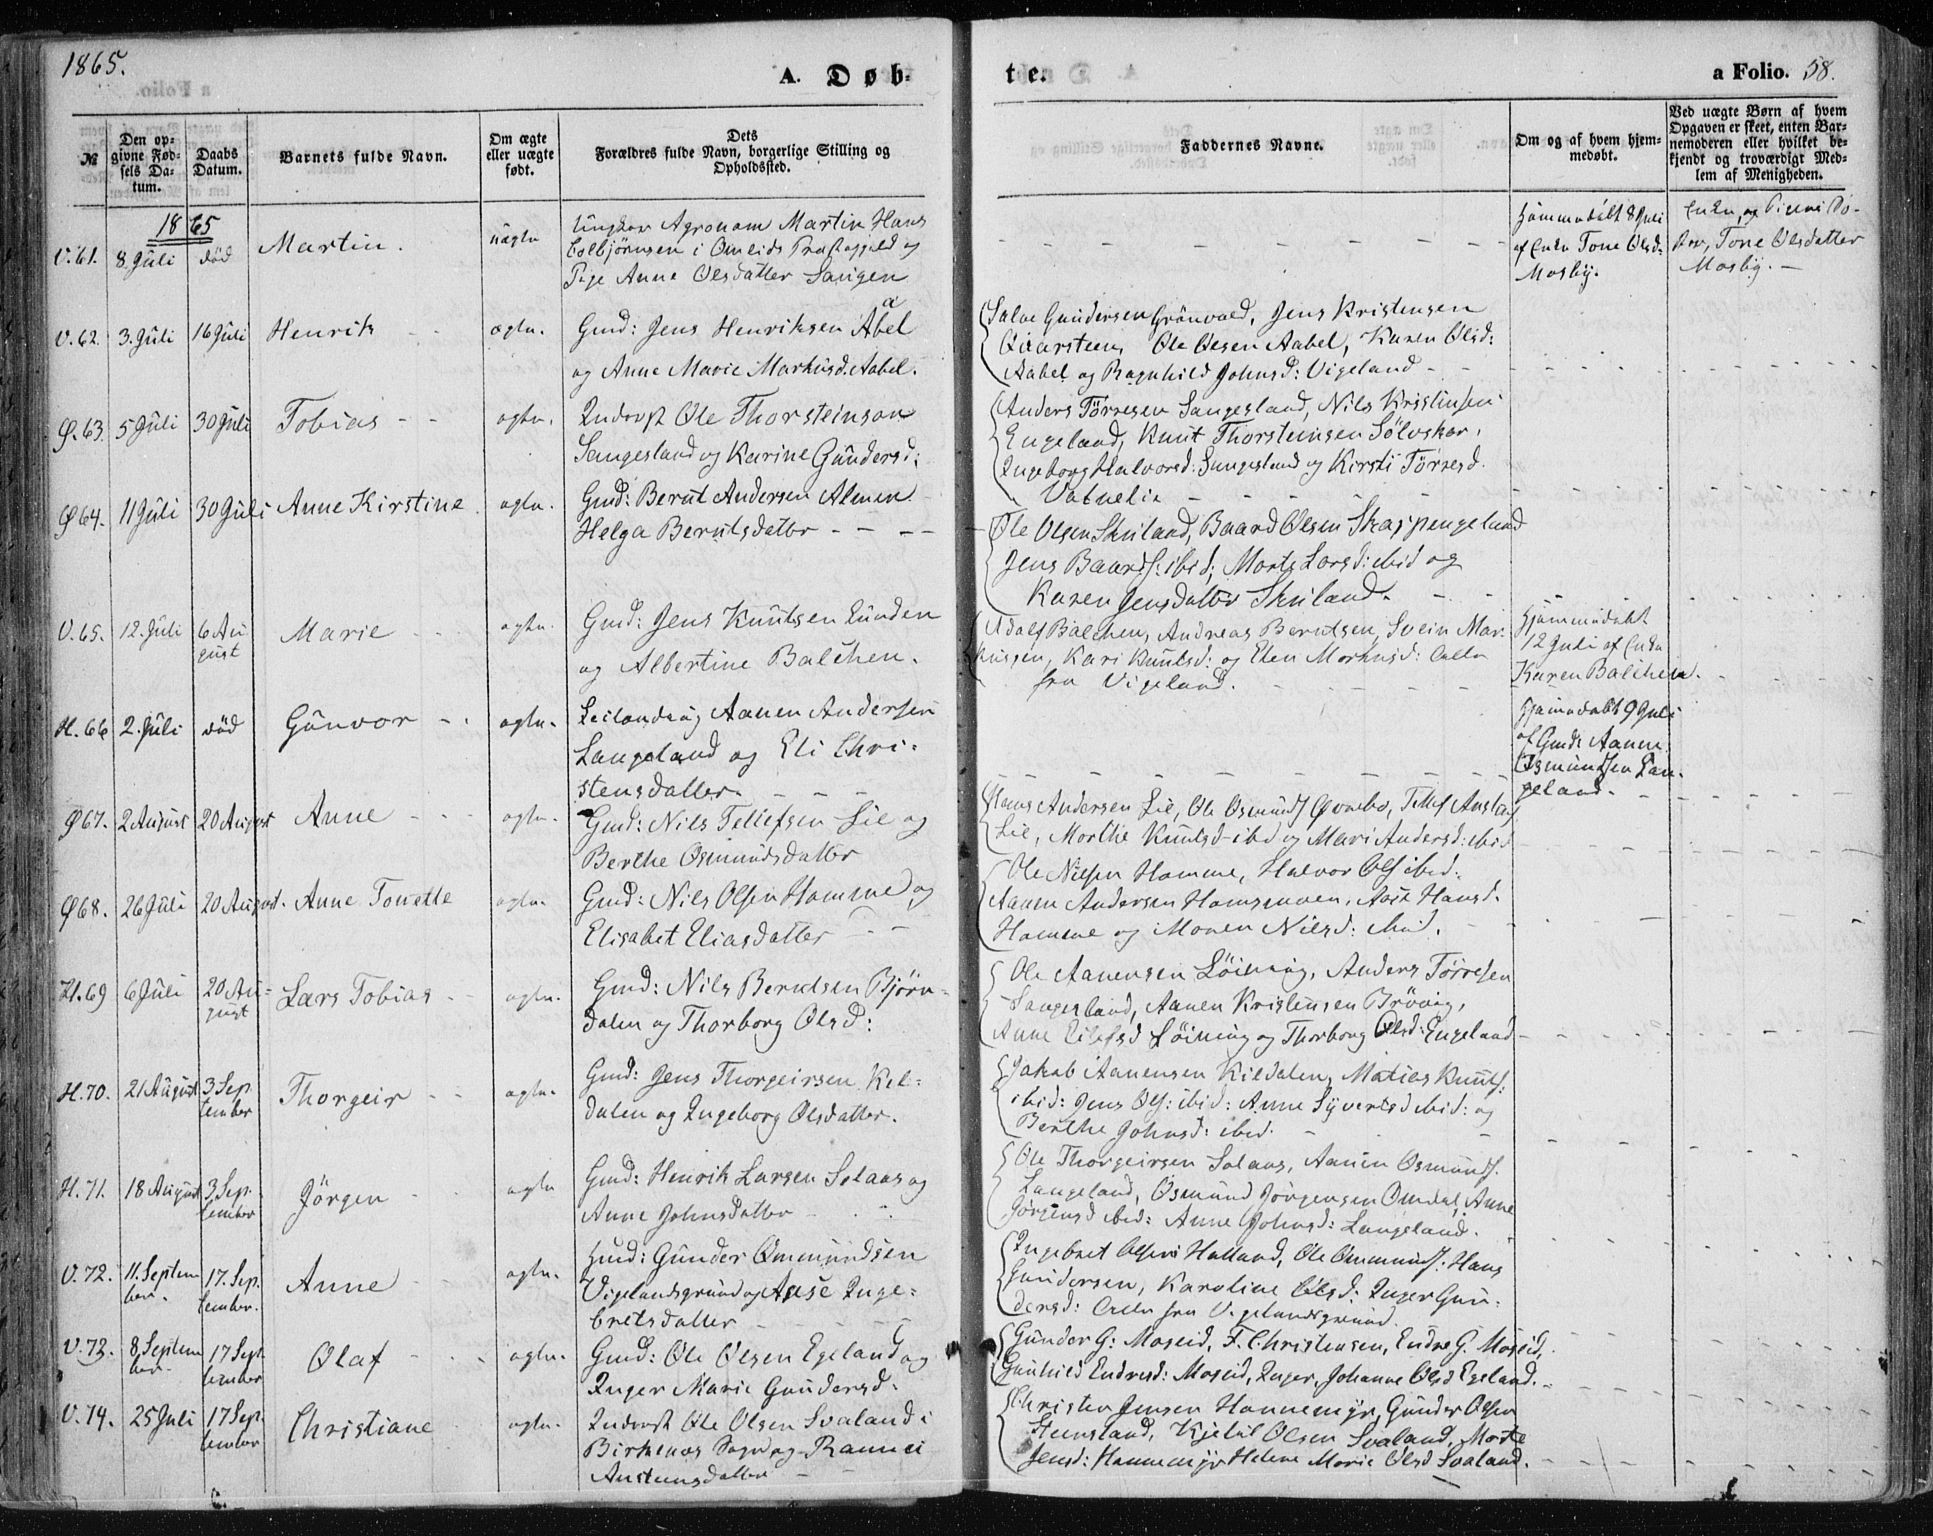 1865.
A. Døb-
te.
a Folio. 58.
№
Den op-
givne Fød-
sels Da-
tum.
Daabs
Datum.
Barnets fulde Navn.
Om ægte
eller uægte
født.
Dets
Forældres fulde Navn, borgerlige Stilling og
Opholdssted.
Faddernes Navne.
Om og af hvem hjem-
medøbt.
Ved uægte Børn af hvem
Opgaven er skeet, enten Bar-
nemoderen eller hvilket be-
kjendt og troværdigt Med-
lem af Menigheden.
1865
V. 61. 8 Juli død Martin. uægte
Ungkar Agronom Martin Hans
i Omlids Præstegjeld og
Pige Anne Olsdatter Sangen
Hjemmedøbt 8 Juli
af Enke Tone Olsd.
Mosby.
Enke og
Tone Olsdatter
Mosby.
V. 62. 3. Juli 16 Juli Henrik ægte.
Gmd: Jens Henriksen Abel
og Anne Marie Markusd. Aabel.
Salve Gundersen Grönvold, Jens Kristensen
Qvarstein, Ole Olsen Aabel, Karen Olsd:
Aabel og Ragnhild Johnsd: Vigeland
Ø. 63. 5 Juli 30 Juli Tobias ægte.
Inderst Ole Thorsteinson
Sangesland og Karine Gundersd:
Anders Törresen Sangesland, Nils Kristensen
Engeland, Knut Thorsteinsen Sölvskar,
Ingeborg Halvorsd: Sangesland og Kirsti Törresd.
Vatnelie
Ø 64. 11 Juli 30 Juli Anne Kirstine ægte.
Gmd: Bernt Andersen
Helga Berntsdatter
Ole Olsen Skriland, Baard Olsen Skarpengeland
Jens Baards: ibid; Morte Larsd: ibid og
Karen Jensdatter Skriland.
V. 65. 12. Juli 6 Au-
gust Marie ægte.
Gmd: Jens Knutsen Lunden
og Albertine Balchen.
Adolf Balchen, Andreas Berntsen, Svein Mar-
kussen, Kari Knutsd: og Elen Markusd: alle
fra Vigeland.
Hjemmedøbt
12 Juli af Enke
Karen Balchen.
H. 66 2. Juli død Gunvor ægte.
Leilænding Aanen Andersen
Langeland og Eli Chri-
stensdatter.
Hjemmedøbt 9 Juli
af Gmd: Aanen
Osmundsen Lan-
geland.
Ø 67. 2 August 20 August Anne ægte.
Gmd: Nils Tellefsen Lie og
Berthe Osmundsdatter
Hans Andersen Lie, Ole Osmunds Øvrebø, Tellef
Lie, Morthe Knutsd ibid og Mari Andersd: ibid
Ø 68. 26 Juli 20 August. Anne Tonette ægte.
Gmd: Nils Olsen Homme og
Elisabet Eliasdatter
Ole Nilsen Homme, Halvor Ols ibid:
Aanen Andersen Homsmoen, Hansd.
Homme og Maren Nilsd: ibid.
H. 69 6 Juli 20 Au-
gust Lars Tobias ægte.
Gmd: Nils Berntsen Björn-
dalen og Thorborg Olsd:
Ole Aanensen Löining, Anders Törresen
Sangesland, Aanen Kristensen Bröving,
Anne Eilefsd Löining og Thorborg Olsd: Engeland
H. 70. 21 August 3 Sep-
tember Thorgeir ægte.
Gmd: Jens Thorgeirsen Kil-
dalen og Ingeborg Olsdatter.
Jakob Aanensen Kildalen, Matias Knuts:
ibid: Jens Ols: ibid: Anne Syvertsd ibid: og
Berthe Johnsd: ibid.
H. 71. 18 August 3 Sep-
tember Jörgen ægte
Gmd: Henrik Larsen Solaas og
Anne Johnsdatter
Ole Thorgeirsen Solaas, Aanen Osmunds.
Langeland, Osmund Jörgensen Omdal, Anne
Jörgensd ibid: Anne Johnsd: Langeland.
V. 72. 11. Septem-
ber. 17. Sep-
tember. Anne ægte.
Husmd: Gunder Ommundsen
Vigelandsgrund og Aase Inge-
bretsdatter
Ingebret Olsen Halland, Ole Ommunds. Hans
Gundersen, Karoline Olsd: Inger Gun-
dersd: Alle fra Vigelandsgrund.
V. 73. 8. Septem-
ber 17 Sept-
tember Olaf ægte.
Gmd: Ole Olsen Egeland og
Inger Marie Gundersd.
Gunder G: Moseid, F. Christensen, Endre G. Moseid,
Gunhild Endresd: Moseid, Inger, Johanne Olsd Egeland.
V. 74. 25 Juli 17 Sep-
tember Christiane ægte.
Inderst Ole Olsen Svaland i
Birkenes Sogn og
Austensdatter
Christen Jensen Hannemyr, Gunder Olsen
Steinsland, Kjetil Olsen Svaland, Morte
Jensd: Hannemyr Helene Marie Olsd Svaland.